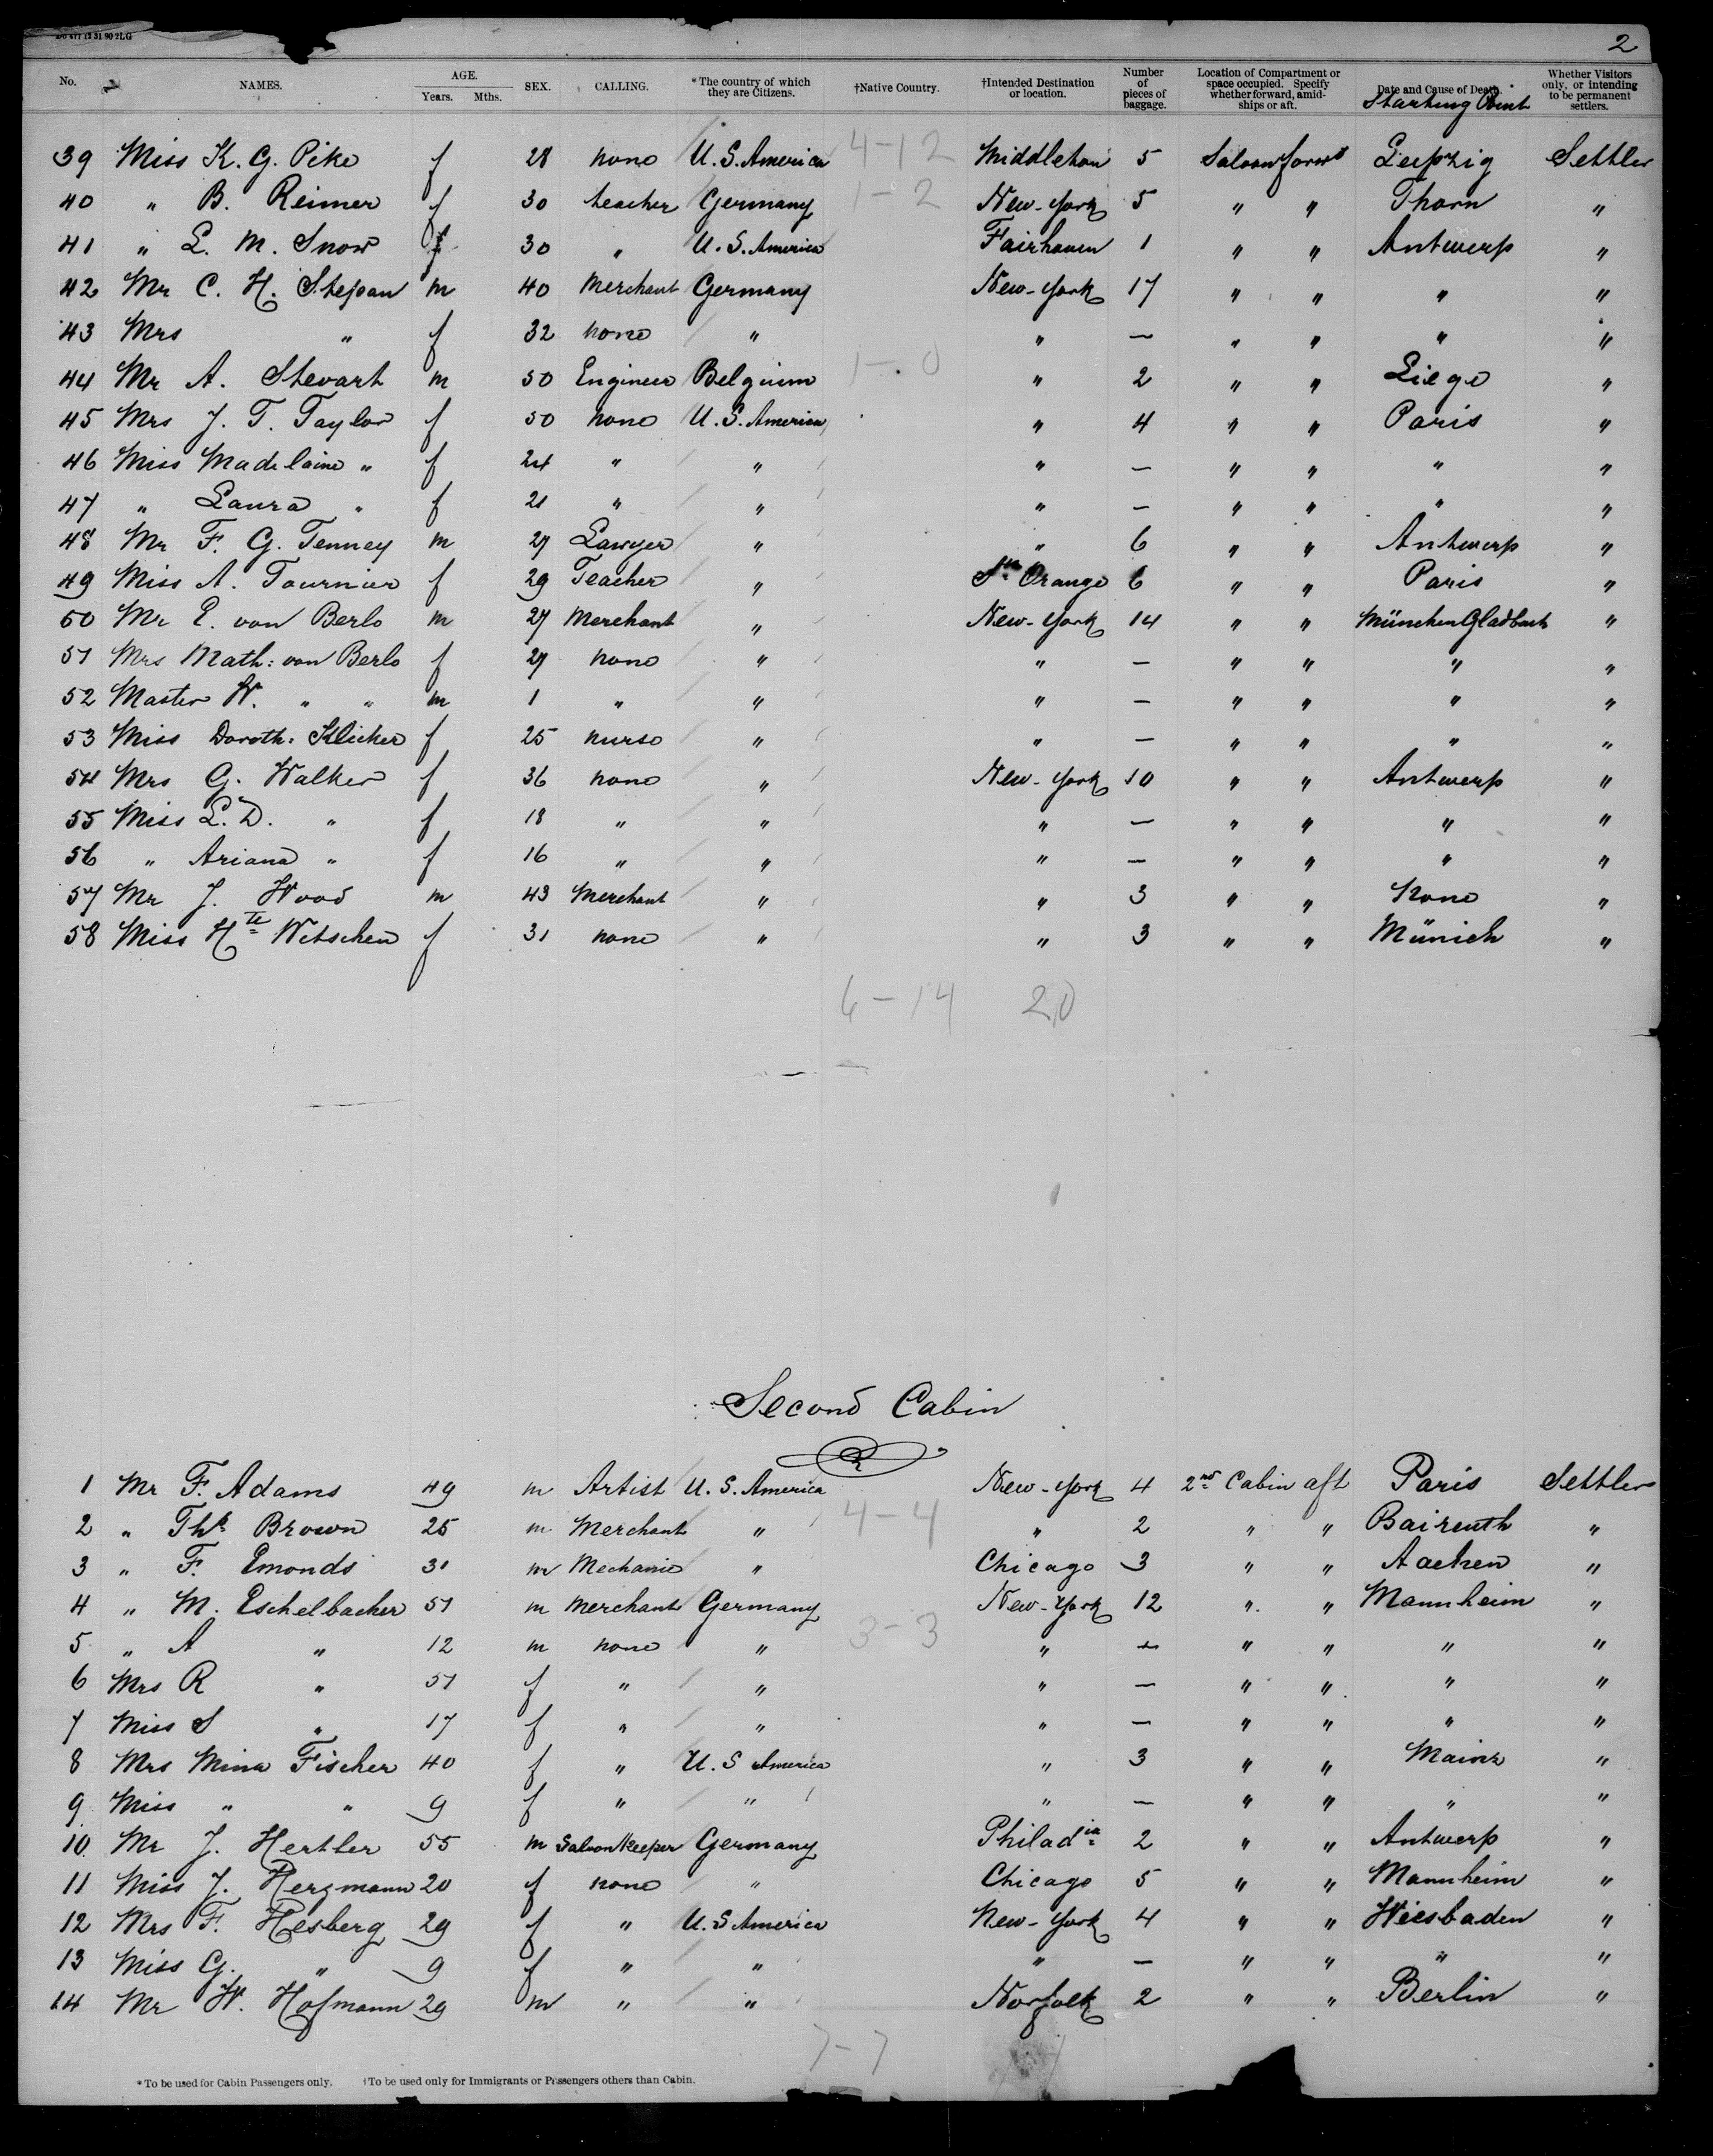 2
No. NAMES. AGE. Years. Mths. SEX. CALLING. *The country of which they are Citizens. †Native Country. †Intended Destination or location. Number of pieces of baggage. Location of Compartment or space occupied. Specify whether forward, amidships or aft. Date and Cause of Death. Starting Point Whether Visitors only, or intending to be permanent settlers.
39 Miss K. G. Pike f 28 none U. S. America 4-12 Middletown 5 Saloon forwd Leipzig Settler
40 " B. Reimer f 30 teacher Germany 1-2 New-York 5 " " Thorn "
41 " L. M. Snow f 30 " U. S. America Fairhaven 1 " " Antwerp "
42 Mr C. H. Stepan m 40 Merchant Germany New-York 17 " " " "
43 Mrs " f 32 none " " — " " " "
44 Mr A. Stevart m 50 Engineer Belgium 1-0 " 2 " " Liege "
45 Mrs J. T. Taylor f 50 none U. S. America " 4 " " Paris "
46 Miss Madelaine " f 24 " " " — " " " "
47 " Laura " f 21 " " " — " " " "
48 Mr F. G. Tenney m 27 Lawyer " " 6 " " Antwerp "
49 Miss A. Tournier f 29 Teacher " Sth Orange 6 " " Paris "
50 Mr E. von Berlo m 27 Merchant " New-York 14 " " München Gladbach "
51 Mrs Math: von Berlo f 27 none " " — " " " "
52 Master W. " " m 1 " " " — " " " "
53 Miss Doroth: Klicker f 25 nurse " " — " " " "
54 Mrs G. Walker f 36 none " New-York 10 " " Antwerp "
55 Miss L. D. " f 18 " " " — " " " "
56 " Ariana " f 16 " " " — " " " "
57 Mr J. Wood m 43 Merchant " " 3 " " "
58 Miss Hte Wetschen f 31 none " " 3 " " Münich "
6-14 20
Second Cabin
1 Mr F. Adams 49 m Artist U. S. America New-York 4 2nd Cabin aft Paris Settler
2 " Ths Brown 25 m Merchant " 4-4 " 2 " " Baireuth "
3 " F. Emonds 31 m Mechanic " Chicago 3 " " Aachen "
4 " M. Eschelbacher 51 m Merchant Germany New-York 12 " " Mannheim "
5 " A " 12 m none " 3-3 " — " " " "
6 Mrs R " 51 f " " " — " " " "
7 Miss S " 17 f " " " — " " " "
8 Mrs Mina Fischer 40 f " U. S America " 3 " " Mainz "
9 Miss " " 9 f " " " — " " " "
10 Mr J. Hertler 55 m Saloon Keeper Germany Philadia 2 " " Antwerp "
11 Miss J. Herzmann 20 f none " Chicago 5 " " Mannheim "
12 Mrs F. Hesberg 29 f " U. S America New-York 4 " " Wiesbaden "
13 Miss G. " 9 f " " " — " " " "
14 Mr W. Hofmann 29 m " " Norfolk 2 " " Berlin "
7-7
*To be used for Cabin Passengers only. †To be used only for Immigrants or Passengers others than Cabin.